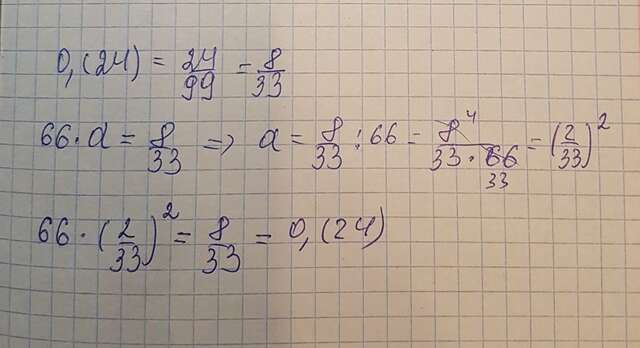 0,(24) = 24/99 = 8/33
66·a = 8/33 => a = 8/33 : 66 = 8⁴/(33·66 33) = (2/33)²
66·(2/33)² = 8/33 = 0,(24)